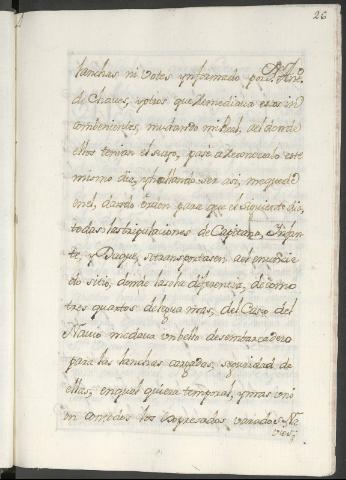 26
lanchas ni votes ynformado por Dn. Anto.
de Chaves, y otros que Remediava esos in
combenientes, mudando mi Real, del donde
ellos tenian el suyo, pasé a Reconocerlo este
mismo dia, y hallando ser asi, me quedé
en el, dando orden para que el siguiente dia,
todas las tripulaciones de Capitana, Infan-
te, y Duque, se transportasen al enuncia-
do sitio, donde la sola diferencia, de como
tres quartos de legua mas, del Casco del
Navio mediava un bello desembarcadero
para las lanchas cargadas, seguridad de
ellas, en qual quiera temporal, y mas uni
on a medio los expresados, varados Na
vios;